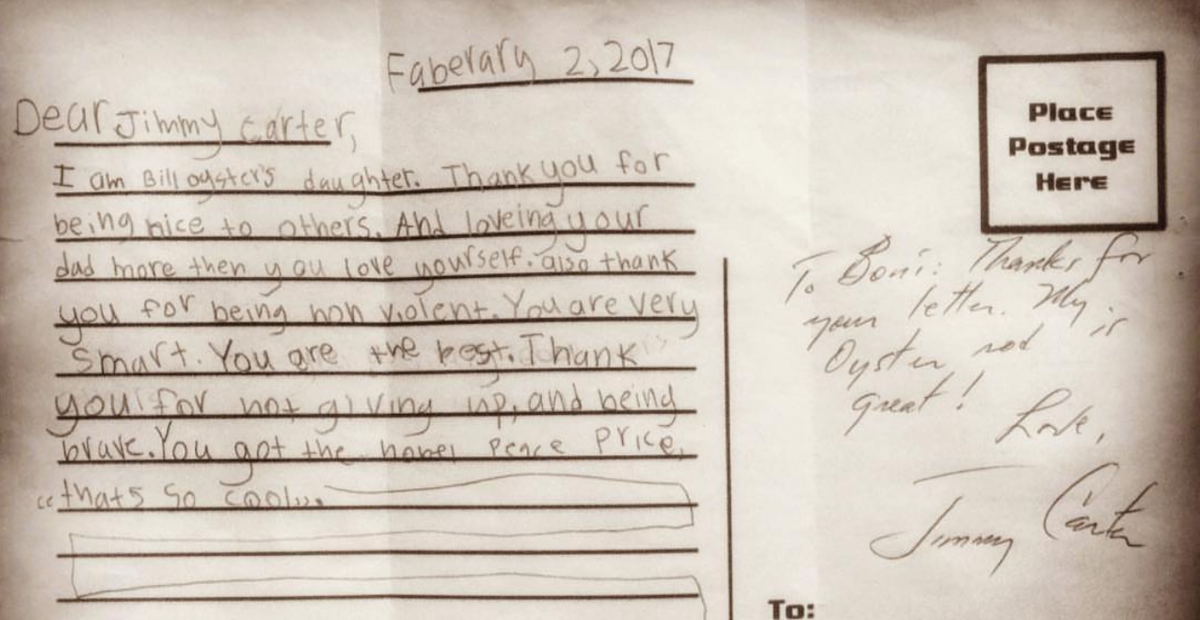 Faberary 2, 2017
Dear Jimmy Carter,
I am Bill oyster's daughter. Thank you for
being nice to others. And loveing your
dad more then you love yourself. also thank
you for being non violent. You are very
smart. You are the best. Thank
you for not giving up, and being
brave. You got the nobel Peace Price,
“thats so cool”.
Place
Postage
Here
To Boni: Thanks for
your letter. My
Oyster rod is
great!
Love,
Jimmy Carter
To: